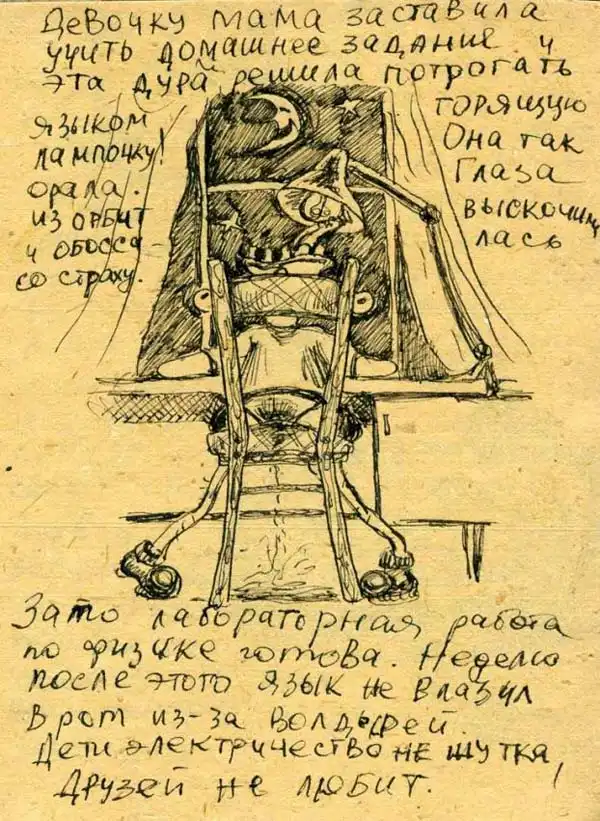 Девочку мама заставила
учить домашнее задание и
эта дура решила потрогать
языком горящую
лампочку! Она так
орала. Глаза
из орбит выскочили
и обосса- лась
со страху.
Зато лабораторная работа
по физике готова. Неделю
после этого язык не влазил
в рот из-за волдырей.
Дети электричество не шутка,
друзей не любит.